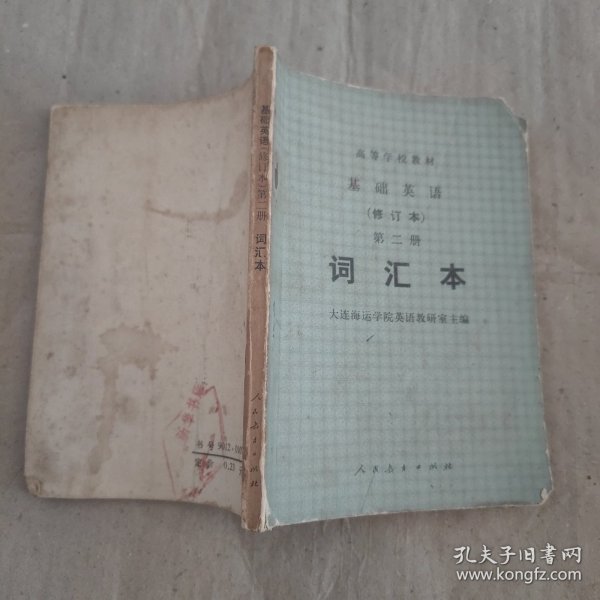 高等学校教材
基础英语
(修订本)
第二册
词汇本
大连海运学院英语教研室主编
人民教育出版社
基础英语(修订本)第二册 词汇本
人民教育出版社
书号 9012·
定价 0.23 元
孔夫子旧书网
www.kongfz.com